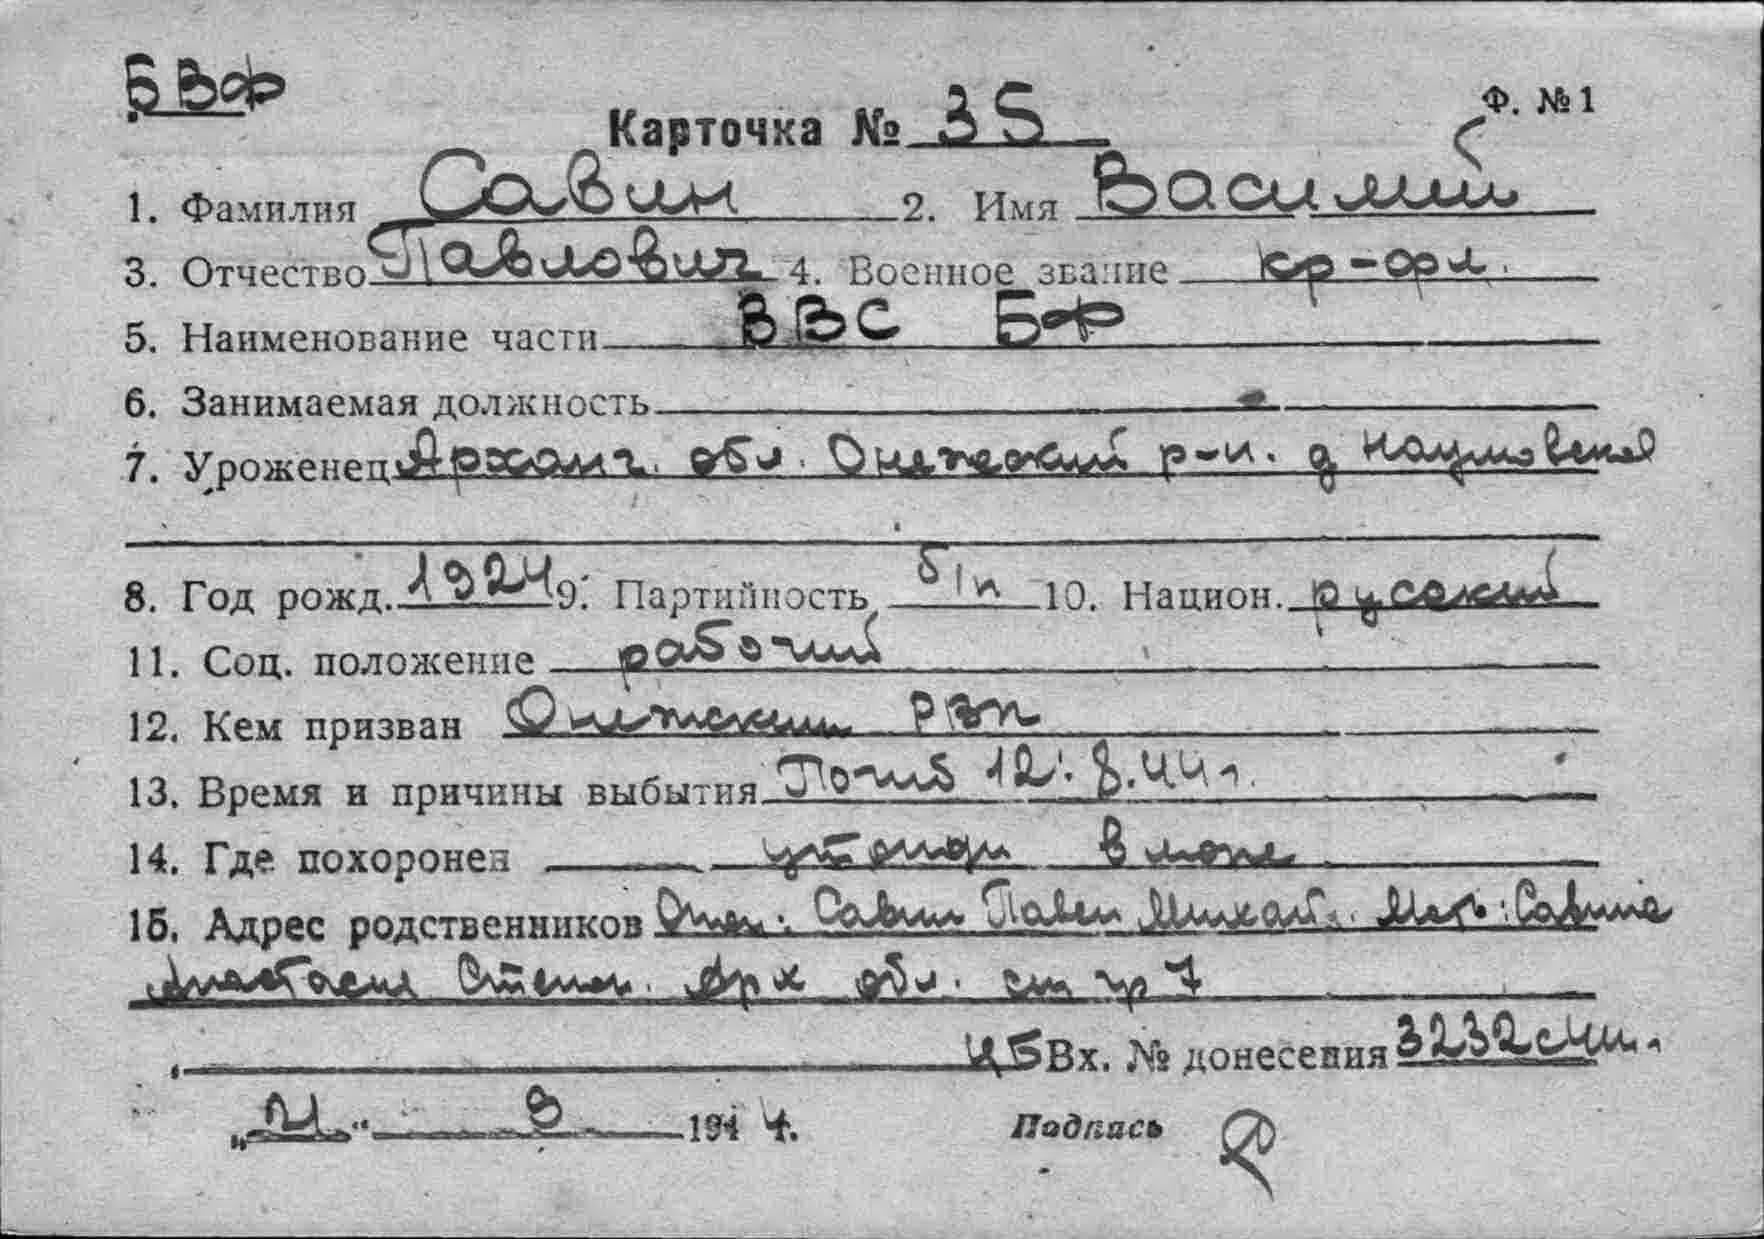 БВФ
Ф. №1
Карточка № 35
1. Фамилия Савин 2. Имя Василий
3. Отчество Павлович 4. Военное звание кр-фл.
5. Наименование части ВВС БФ
6. Занимаемая должность
7. Уроженец Арханг. обл. Онежский р-н. д Наумовская
8. Год рожд. 1924 9. Партийность б/п 10. Национ. русский
11. Соц. положение рабочий
12. Кем призван Онежским РВК
13. Время и причины выбытия Погиб 12.8.44 г.
14. Где похоронен в море
15. Адрес родственников Отец: Савин Павел Михайл. Мать: Савина
Анастасия Степан. Арх обл.
Вх. № донесения 3232
„21" 9 1944.
Подпись